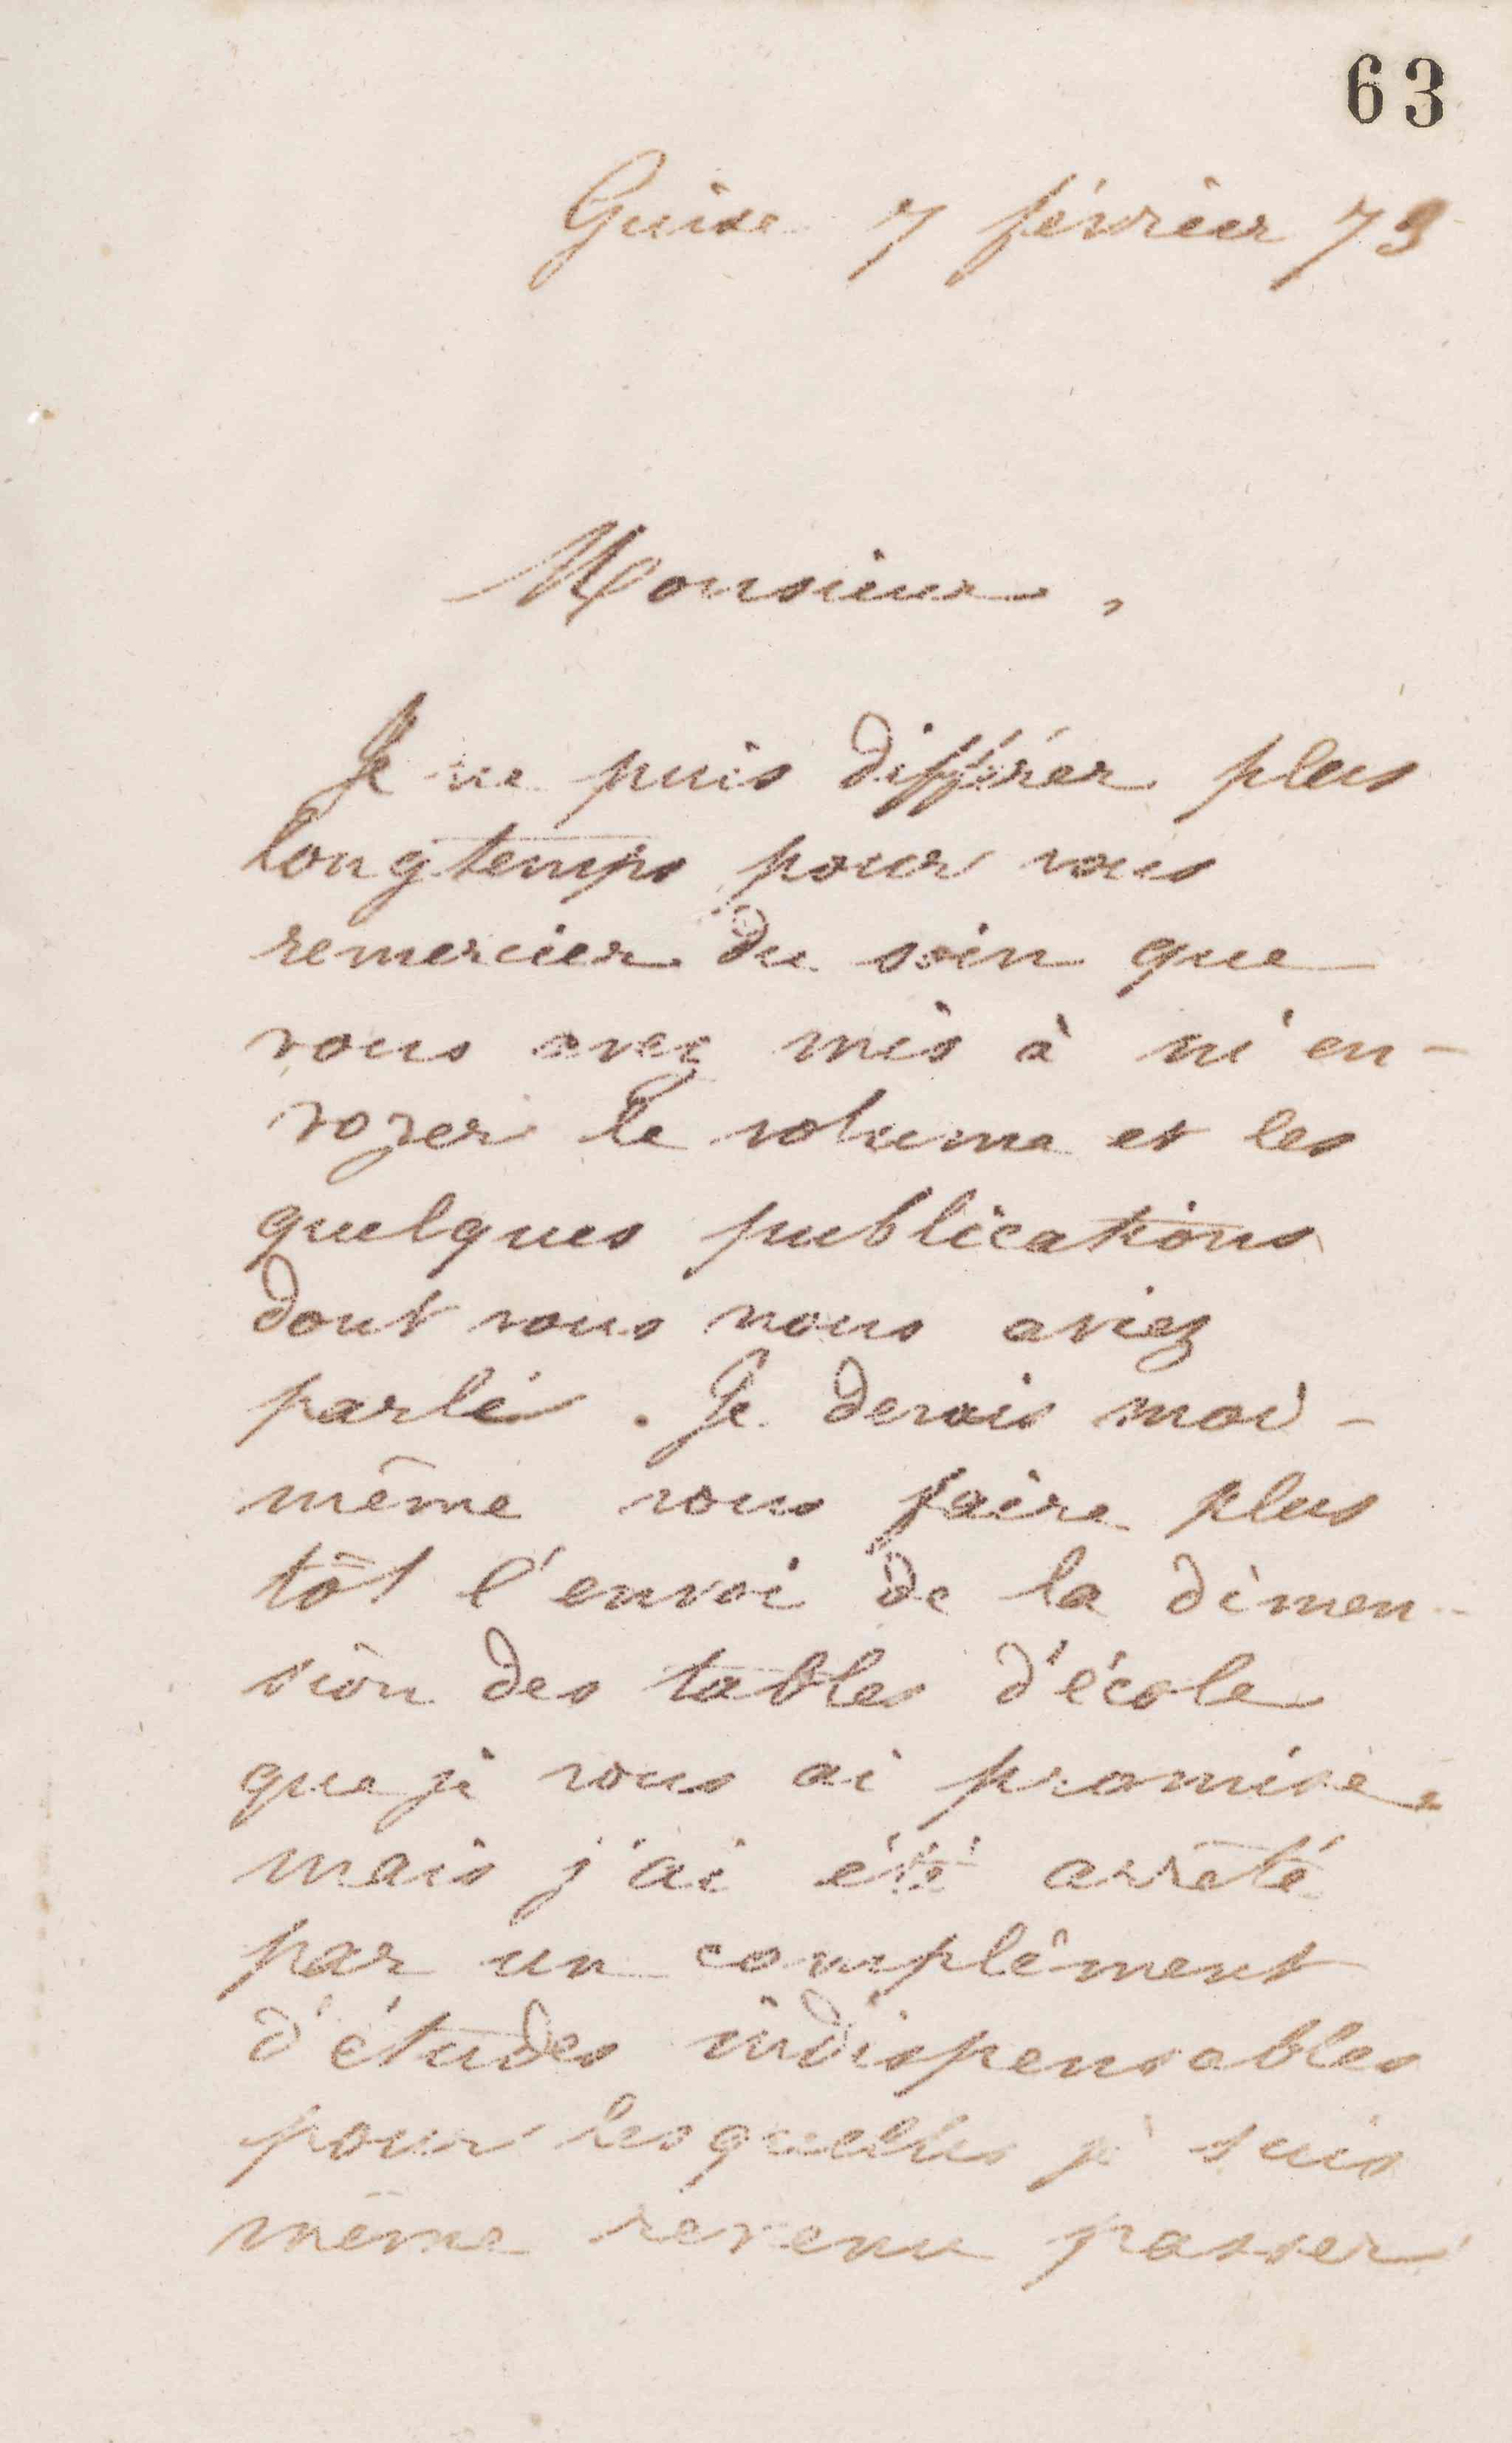 63
Guise 7 février 73
Monsieur,
Je ne puis différer plus
longtemps pour vous
remercier du soin que
vous avez mis à m'en-
voyer le volume et les
quelques publications
dont vous nous aviez
parlé. Je devais moi-
même vous faire plus
tôt l'envoi de la dimen-
sion des tables d'école
que je vous ai promise,
mais j'ai été arrêté
par un complément
d'études indispensables
pour lesquelles je suis
même revenu passer